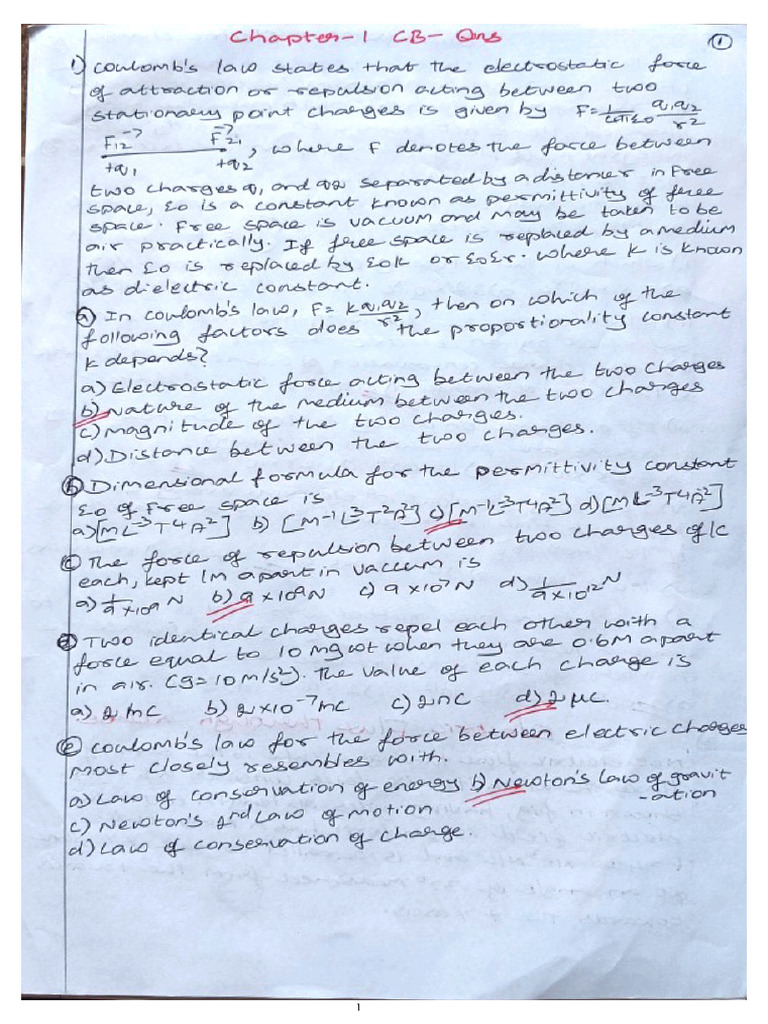 Chapter-1 CB-Qns
①
1) Coulomb's law states that the electrostatic force
of attraction or repulsion acting between two
stationary point charges is given by F=1/4πε0 q1q2/r2
F12→ F21→
+q1 +q2, where F denotes the force between
two charges q1 and q2 separated by a distance r in free
space, ε0 is a constant known as permittivity of free
space. Free space is vacuum and may be taken to be
air practically. If free space is replaced by a medium
then ε0 is replaced by ε0k or ε0εr. where k is known
as dielectric constant.
ⓐ In coulomb's law, F= kq1q2/r2, then on which of the
following factors does the proportionality constant
k depends?
a) Electrostatic force acting between the two charges
b) Nature of the medium between the two charges
c) magnitude of the two charges.
d) Distance between the two charges.
ⓑ Dimensional formula for the permittivity constant
ε0 of free space is
a) [M L-3 T4 A2] b) [M-1 L3 T2 A2] c) [M-1 L-3 T4 A2] d) [M L-3 T4 A-2]
ⓒ The force of repulsion between two charges of 1c
each, kept 1m apart in vaccum is
a) 1/9×109 N b) 9×109N c) 9×107N d) 1/9×1012 N
ⓓ Two identical charges repel each other with a
force equal to 10 mg wt when they are 0.6M apart
in air. (g=10m/s2). The value of each charge is
a) 2 mC b) 2×10-7mC c) 2nC d) 2 μC.
ⓔ Coulomb's law for the force between electric charges
most closely resembles with.
a) Law of conservation of energy b) Newton's law of gravit
-ation
c) Newton's 2nd Law of motion
d) Law of conservation of charge.
1